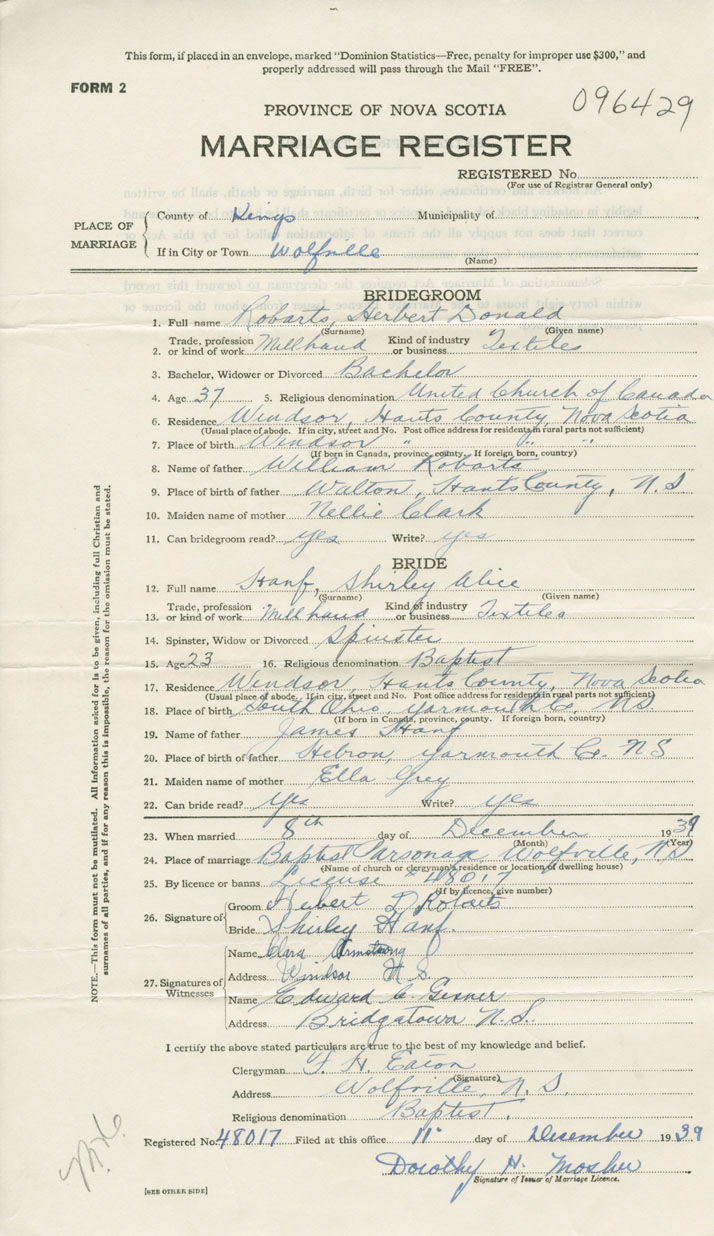 This form, if placed in an envelope, marked "Dominion Statistics—Free, penalty for improper use $300," and
properly addressed will pass through the Mail "FREE".
FORM 2
096429
PROVINCE OF NOVA SCOTIA
MARRIAGE REGISTER
REGISTERED No.
(For use of Registrar General only)
PLACE OF MARRIAGE
County of Kings Municipality of
If in City or Town Wolfville
(Name)
BRIDEGROOM
1. Full name Robarts, Herbert Donald
(Surname) (Given name)
2. Trade, profession or kind of work Millhand Kind of industry or business Textiles
3. Bachelor, Widower or Divorced Bachelor
4. Age 37 5. Religious denomination United Church of Canada
6. Residence Windsor, Hants County, Nova Scotia
(Usual place of abode. If in city, street and No. Post office address for residents in rural parts not sufficient)
7. Place of birth Windsor " " "
(If born in Canada, province, county. If foreign born, country)
8. Name of father William Robarts
9. Place of birth of father Walton, Hants County, N.S
10. Maiden name of mother Nellie Clark
11. Can bridegroom read? yes Write? yes
BRIDE
12. Full name Hanf, Shirley Alice
(Surname) (Given name)
13. Trade, profession or kind of work Millhand Kind of industry or business Textiles
14. Spinster, Widow or Divorced Spinster
15. Age 23 16. Religious denomination Baptist
17. Residence Windsor, Hants County, Nova Scotia
(Usual place of abode. If in city, street and No. Post office address for residents in rural parts not sufficient)
18. Place of birth South Ohio, Yarmouth Co. NS
(If born in Canada, province, county. If foreign born, country)
19. Name of father James Hanf
20. Place of birth of father Hebron, Yarmouth Co. NS
21. Maiden name of mother Ella Grey
22. Can bride read? yes Write? yes
23. When married 8th day of December 1939
(Month) (Year)
24. Place of marriage Baptist Parsonage Wolfville, NS
(Name of church or clergyman's residence or location of dwelling house)
25. By licence or banns License 48017
(If by licence, give number)
26. Signature of
Groom Herbert D Robarts
Bride Shirley Hanf.
27. Signatures of Witnesses
Name Clara Armstrong
Address Windsor N.S.
Name Edward C. Gesner
Address Bridgetown N.S.
I certify the above stated particulars are true to the best of my knowledge and belief.
Clergyman F. H. Eaton
(Signature)
Address Wolfville, N.S.
Religious denomination Baptist.
Registered No. 48017 Filed at this office 11 day of December 1939
Dorothy H. Mosher
Signature of Issuer of Marriage Licence.
[SEE OTHER SIDE]
NOTE.—This form must not be mutilated. All Information asked for is to be given, including full Christian and
surnames of all parties, and if for any reason this is impossible, the reason for the omission must be stated.